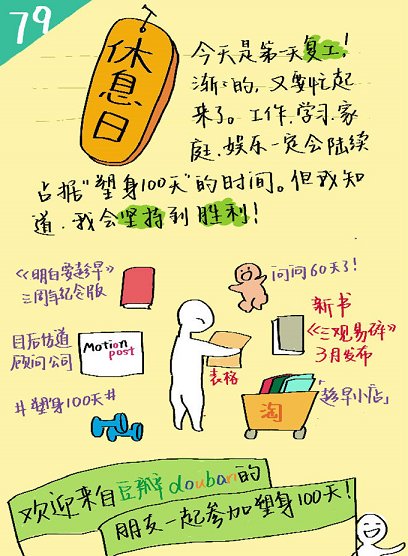 79
休息日
今天是第一天复工!
渐渐的,又要忙起
来了。工作.学习.家
庭.娱乐一定会陆续
占据"塑身100天"的时间。但我知
道.我会坚持到胜利!
《明白要趁早》
三周年纪念版
问问60天了!
新书
《三观易碎》
3月发布
目后佐道
顾问公司
Motion
post
表格
#塑身100天#
淘
「趁早小店」
欢迎来自豆瓣douban的
朋友一起参加塑身100天!